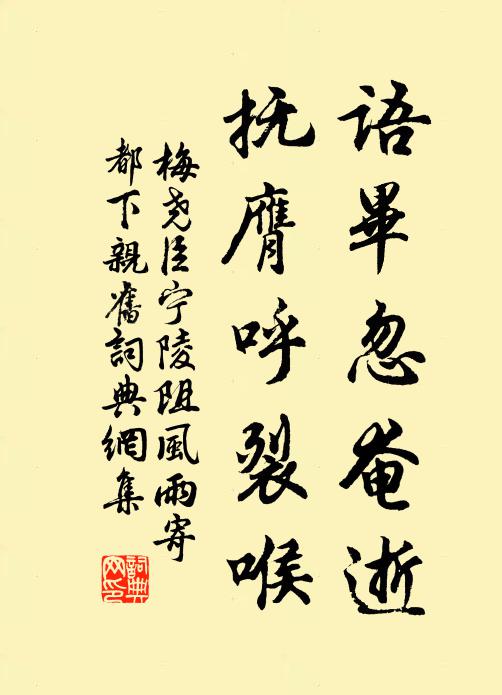 語畢忽奄逝
抚膺呼裂喉
梅尧臣宁陵阻風雨寄
都下親舊詞典網集
詞典網印